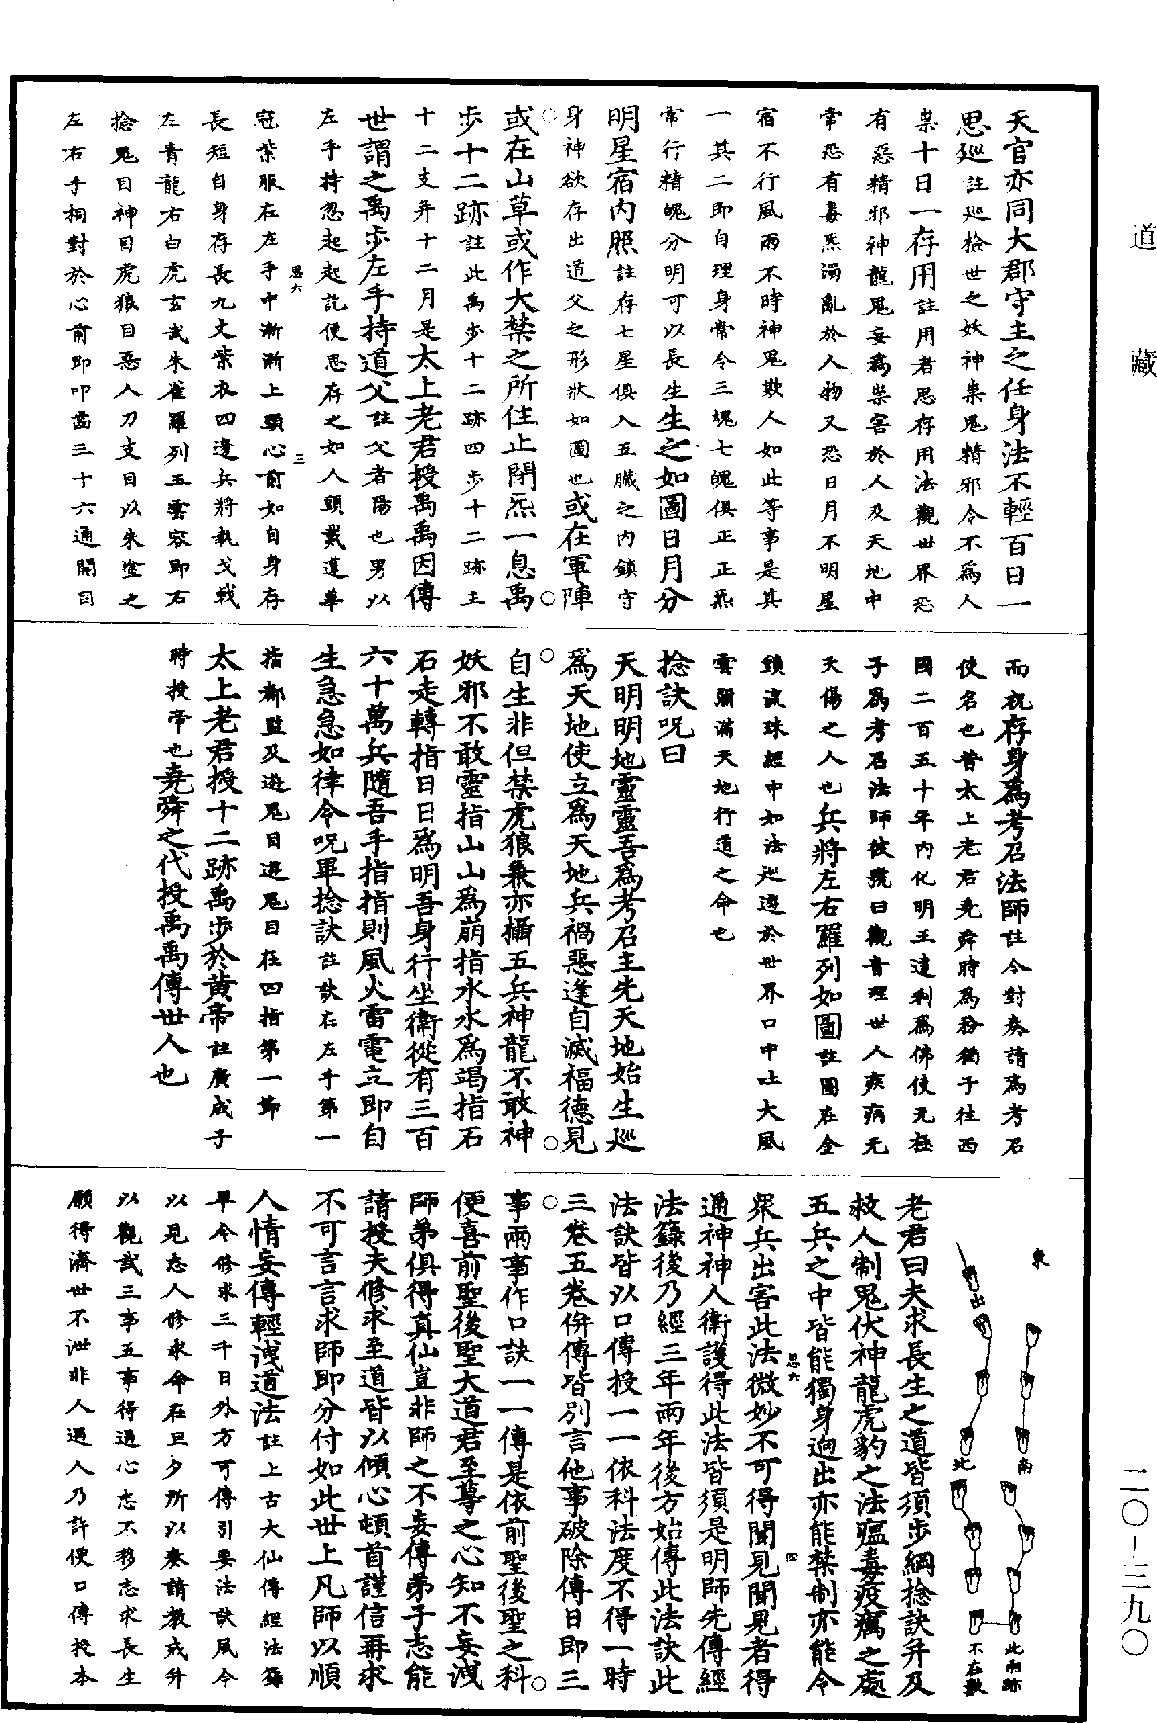 道藏
天官亦同大郡守主之任身法不輕百日一
思巡註巡捨世之妖神祟鬼精邪令不為人
祟十日一存用註用者思存用法觀世界恐
有惡精邪神龍鬼妄為祟害於人及天地中
常恐有毒炁濁亂於人物又恐日月不明星
宿不行風雨不時神鬼欺人如此等事是其
一其二即自理身常令三魂七魄俱正正炁
常行精魄分明可以長生生之如圖日月分
明星宿內照註存七星俱入五臟之內鎮守
身神欲存出道父之形狀如圖也或在軍陣
或在山草或作大禁之所住止閉炁一息禹
步十二跡註此禹步十二跡四步十二跡主
十二支并十二月是太上老君授禹禹因傳
世謂之禹步左手持道父註父者陽也男以
左手持忽起起訖便思存之如人頭戴蓮華
冠紫服在左手中漸漸上頭心前如自身存
思六 三
長短自身存長九丈紫衣四邊兵將執戈戟
左青龍右白虎玄武朱雀羅列五雲容即右
捻鬼目神目虎狼目惡人刀支目以朱塗之
左右手相對於心前即叩齒三十六通開目
而祝存身為考召法師註今對奏請為考召
使名也昔太上老君堯舜時為務獨子往西
國二百五十年內化明王達利為佛使无極
子為考召法師彼號曰觀音理世人疾病无
夭傷之人也兵將左右羅列如圖註圖在金
鎖流珠經中如法巡遶於世界口中吐大風
雲關滿天地行道之命也
捻訣呪曰
天明明地靈靈吾為考召主先天地始生巡
為天地使立為天地兵禍惡逢自滅福德見
自生非但禁虎狼兼亦攝五兵神龍不敢神
妖邪不敢靈指山山為崩指水水為竭指石
石走轉指日日為明吾身行坐衛從有三百
六十萬兵隨吾手指指則風火雷電立即自
生急急如律令呪畢捻訣註訣在左手第一
指都監及遊鬼目遊鬼目在四指第一節
太上老君授十二跡禹步於黃帝註廣成子
時授帝也堯舜之代授禹禹傳世人也
東
出
北
南
不右數
此兩跡
老君曰夫求長生之道皆須步綱捻訣并及
救人制鬼伏神龍虎豹之法瘟毒疫癘之處
五兵之中皆能獨身迥出亦能禁制亦能令
眾兵出害此法微妙不可得聞見聞見者得
思六 四
通神神人衛護得此法皆須是明師先傳經
法籙後乃經三年兩年後方始傳此法訣此
法訣皆以口傳授一一依科法度不得一時
三卷五卷併傳皆別言他事破除傳日即三
事兩事作口訣一一傳是依前聖後聖之科
便喜前聖後聖大道君至尊之心知不妄洩
師弟俱得真仙豈非師之不妄傳弟子志能
請授夫修求至道皆以傾心頓首謹信再求
不可言言求師即分付如此世上凡師以順
人情妄傳輕洩道法註上古大仙傳經法籙
早令修求三千日外方可傳引要法訣風令
以見志人修求命在旦夕所以奏請教戒升
以觀試三事五事得通心志不移志求長生
願得濟世不泄非人過人乃許便口傳投本
二〇—三九〇